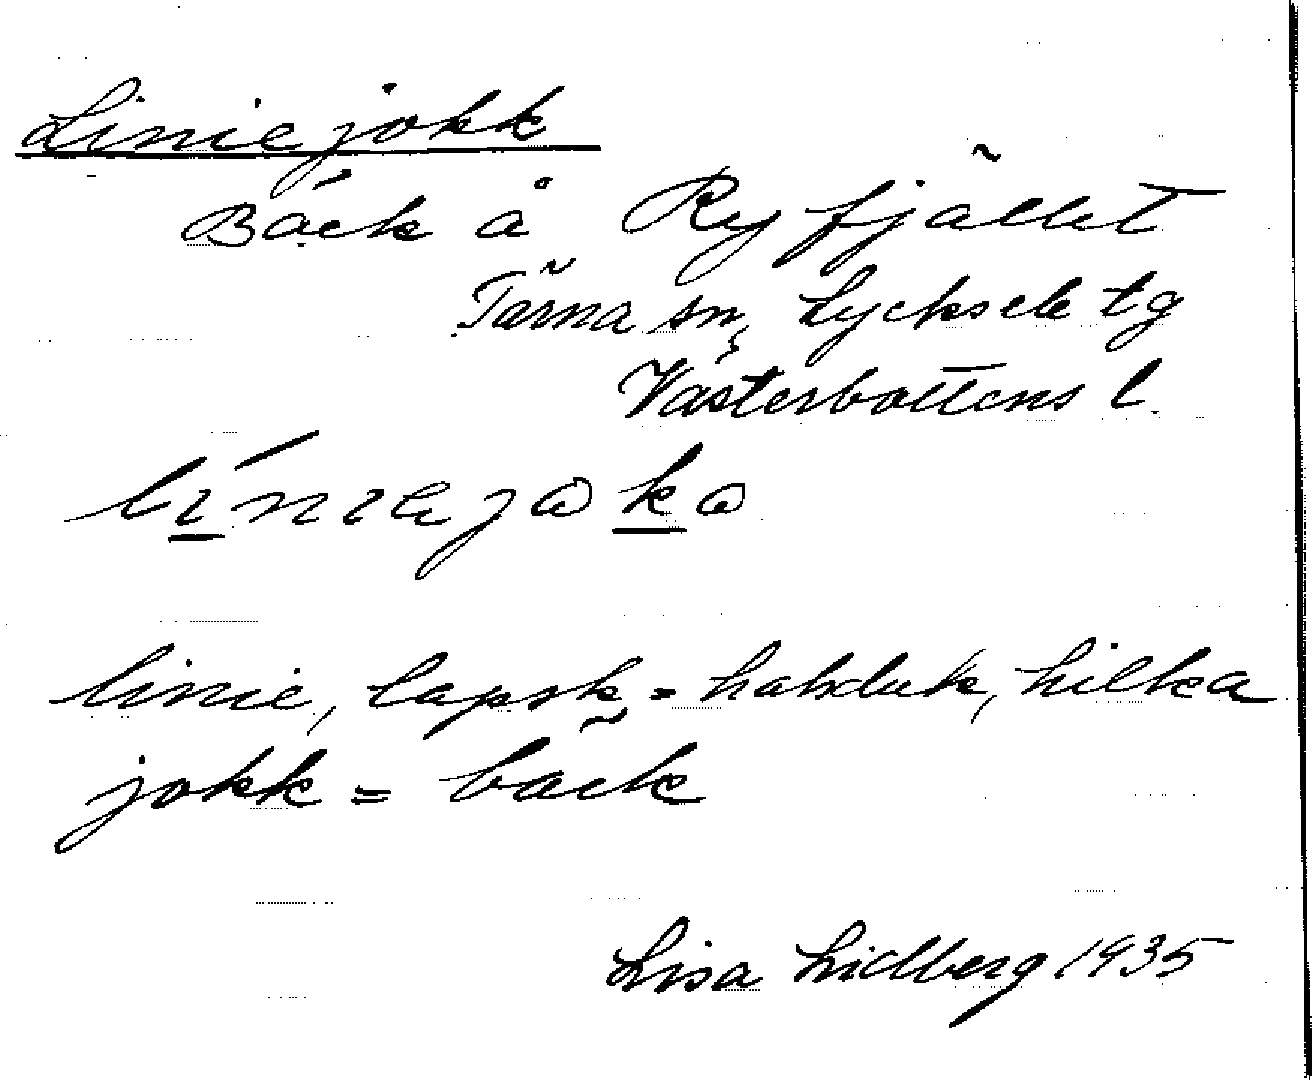 Liniejokk
Bäck å Ryfjället
Tärna sn, Lycksele tg
Västerbottens l.
líniejoko
linie, lapsk, = halsduk, hilka
jokk = bäck
Lisa Lidberg 1935